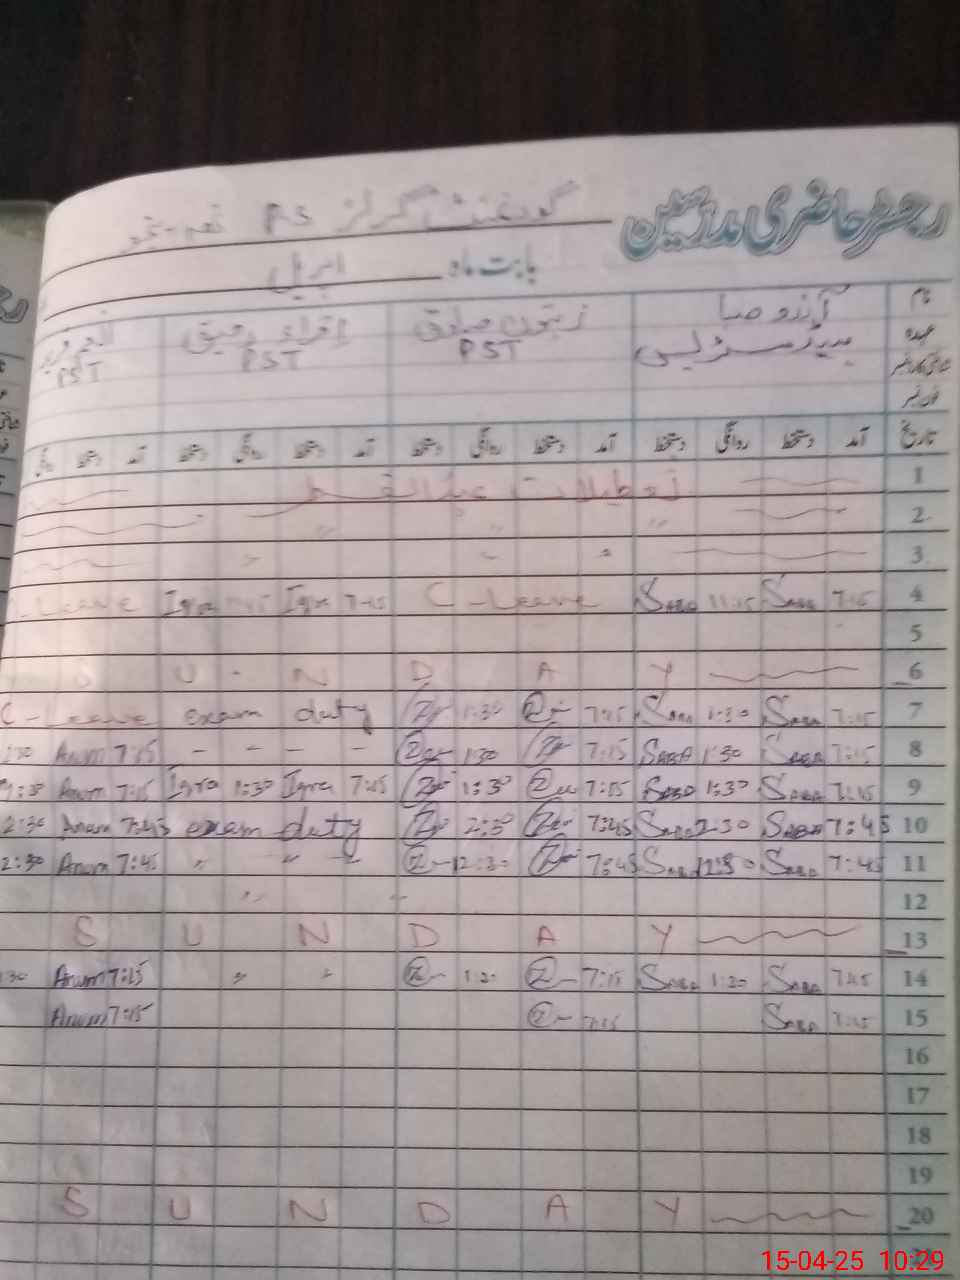 رجسٹر حاضری مدرسین گورنمنٹ گرلز PS
بابت ماہ اپریل
نام
عہدہ ہیڈمسٹریس زیتون صادق PST اقراء رفیق PST PST
شناختی کارڈ نمبر
فون نمبر
تاریخ آمد دستخط روانگی دستخط آمد دستخط روانگی دستخط آمد دستخط روانگی دستخط آمد دستخط روانگی
1 تعطیلات عیدالفطر
2 〃 〃 〃
3 〃 〃 〃
4 7:15 Saba 11:15 Saba C-Leave 7:15 Iqra Iqra Leave
5
6 S U N D A Y
7 7:15 Saba 1:30 Saba 7:15 1:30 exam duty C-Leave
8 7:15 Saba 1:30 Saba 7:15 1:30 - - - - 7:15 Anum 1:30
9 7:15 Saba 1:30 Saba 7:15 1:30 7:15 Iqra 1:30 Iqra 7:15 Anum 1:30
10 7:45 Saba 2:30 Saba 7:45 2:30 exam duty 7:45 Anum 2:30
11 7:45 Saba 12:30 Saba 7:45 12:30 〃 〃 7:45 Anum 12:30
12 〃
13 S U N D A Y
14 7:15 Saba 1:20 Saba 7:15 1:20 〃 〃 7:15 Anum 1:30
15 7:15 Saba 7:15 7:15 Anum
16
17
18
19
20 S U N D A Y
15-04-25 10:29